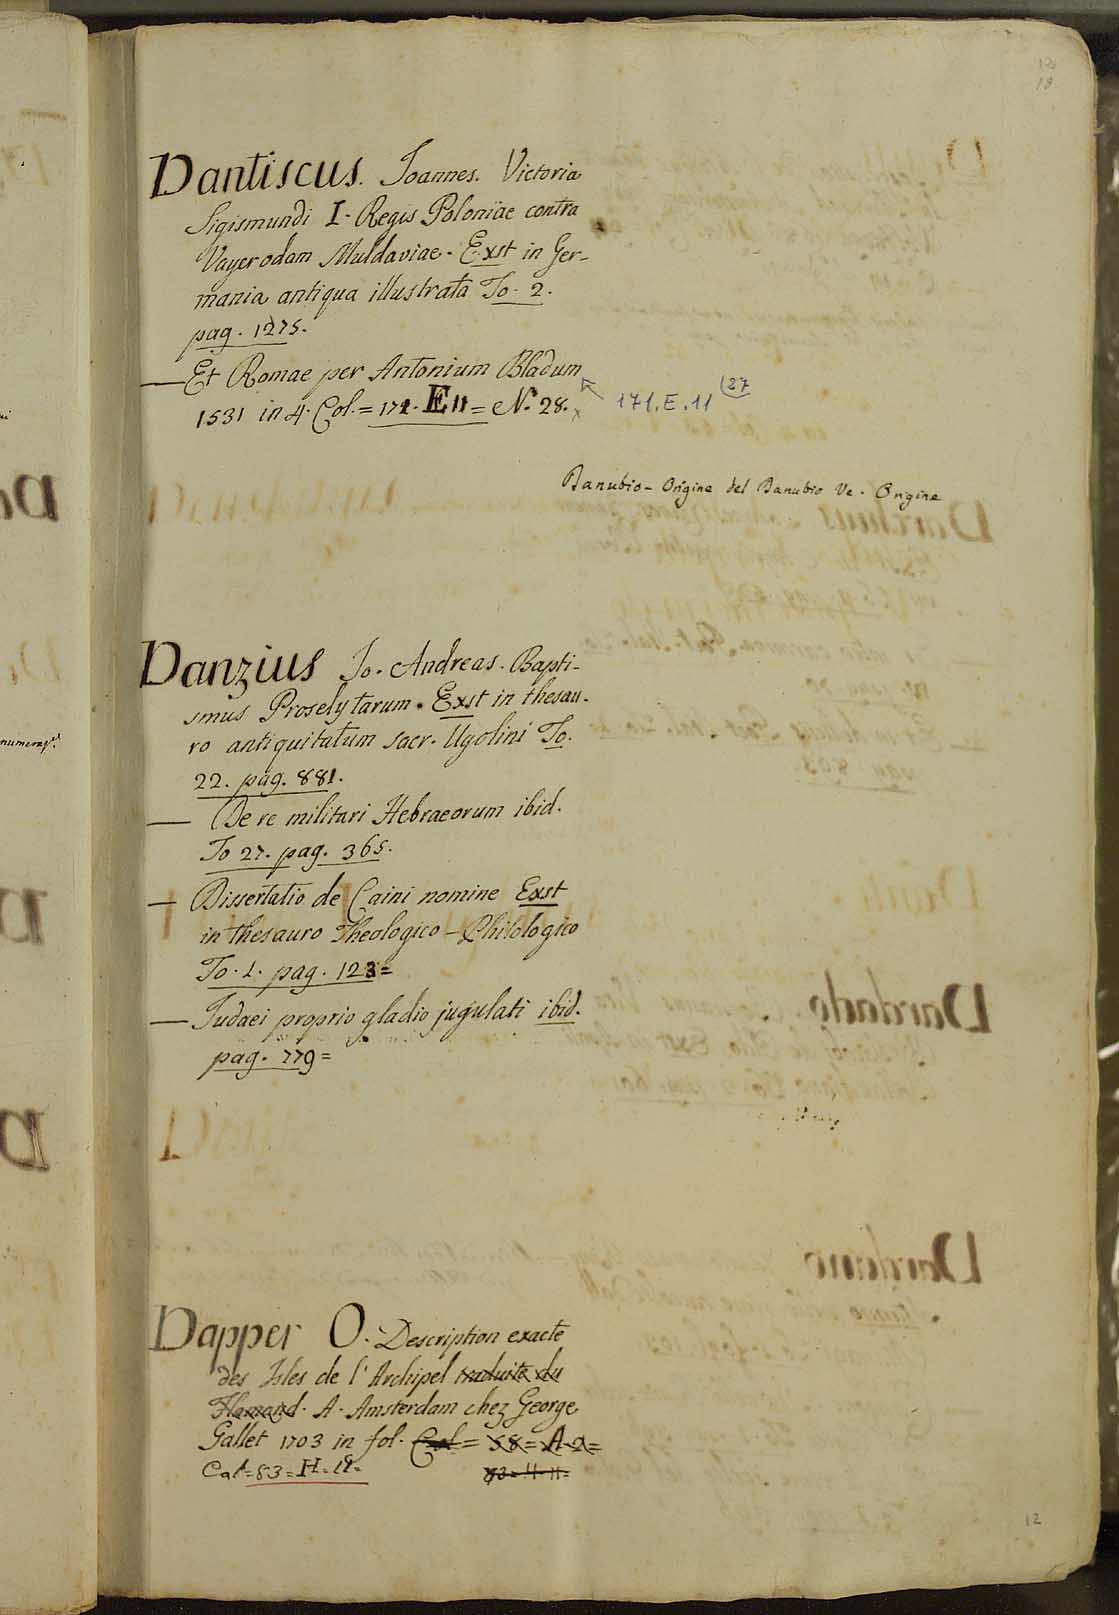 Dantiscus. Joannes. Victoria
Sigismundi I. Regis Poloniae contra
Vayerodam Muldaviae. Exst in Ger-
mania antiqua illustrata To. 2.
pag. 1275.
— Et Romae per Antonium Bladum
1531 in 4. Col. = 171. E 11 = N. 28.
171. E. 11 (27
Danubio - Origine del Danubio Ve. Origine
Danzius Jo. Andreas. Bapti-
smus Proselytarum. Exst in thesau-
ro antiquitatum sacr. Ugolini To.
22. pag. 881.
— De re militari Hebraeorum ibid.
To 27. pag. 365.
— Dissertatio de Caini nomine Exst
in thesauro Theologico-Philologico
To. 1. pag. 123=
— Judaei proprio gladio jugulati ibid.
pag. 779=
Dapper O. Description exacte
des Isles de l'Archipel traduite du
Flamand. A. Amsterdam chez George
Gallet 1703 in fol. Col = 58 = A 2 =
Cat = 83 = H = 18 =
12